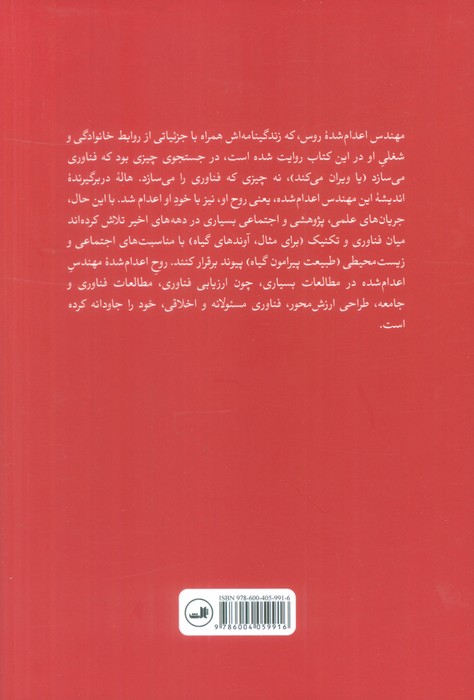 مهندس اعدام‌شدهٔ روس، که زندگینامه‌اش همراه با جزئیاتی از روابط خانوادگی و
شغلیِ او در این کتاب روایت شده است، در جستجوی چیزی بود که فناوری
می‌سازد (یا ویران می‌کند)، نه چیزی که فناوری را می‌سازد. هالهٔ دربرگیرندهٔ
اندیشهٔ این مهندس اعدام‌شده، یعنی روح او، نیز با خودِ او اعدام شد. با این حال،
جریان‌های علمی، پژوهشی و اجتماعی بسیاری در دهه‌های اخیر تلاش کرده‌اند
میان فناوری و تکنیک (برای مثال، آوندهای گیاه) با مناسبت‌های اجتماعی و
زیست‌محیطی (طبیعت پیرامون گیاه) پیوند برقرار کنند. روحِ اعدام‌شدهٔ مهندسِ
اعدام‌شده در مطالعات بسیاری، چون ارزیابی فناوری، مطالعات فناوری و
جامعه، طراحی ارزش‌محور، فناوری مسئولانه و اخلاقی، خود را جاودانه کرده
است.
ISBN 978-600-405-991-6
ثالث
9786004059916